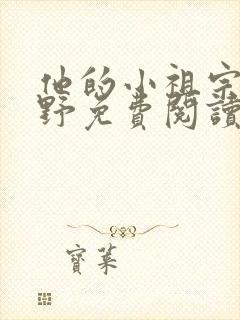 他的小祖宗
野免費閱讀
寶葉